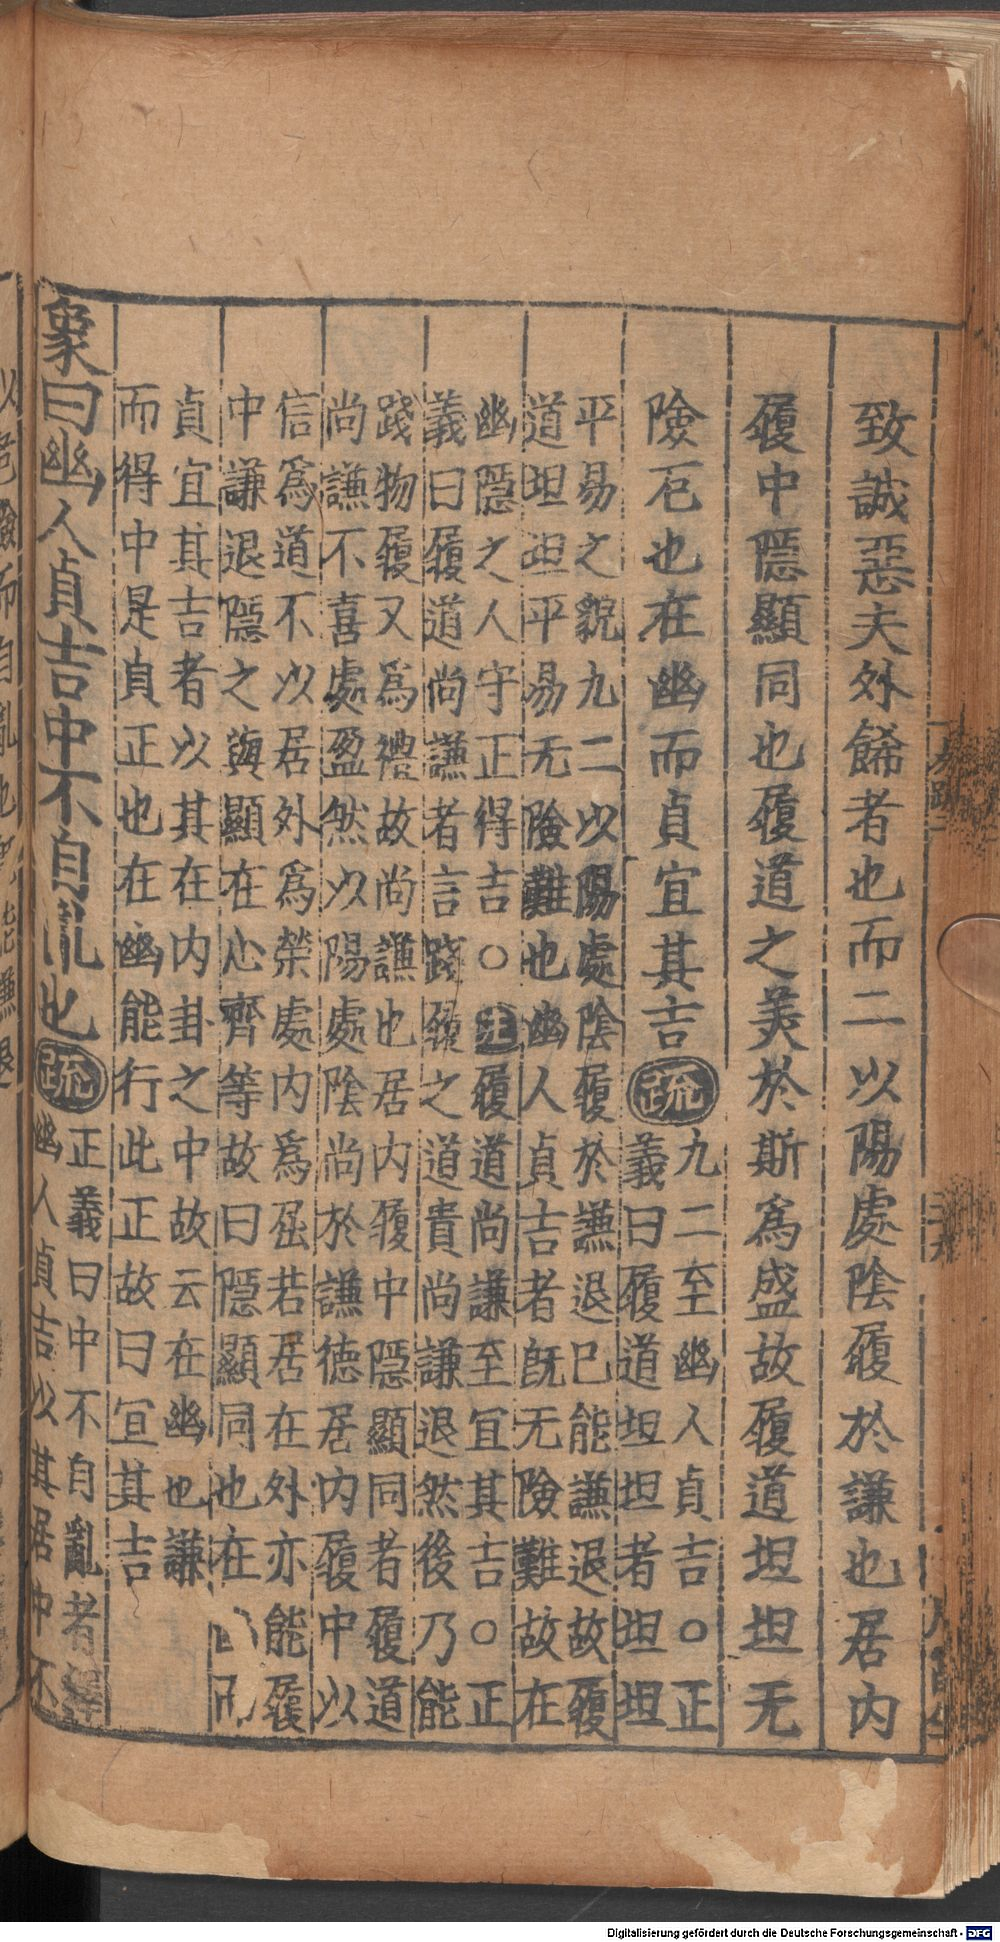 致誠惡夫外餙者也而二以陽處陰履於謙也居内
履中隱顯同也履道之羙於斯爲盛故履道坦坦无
險厄也在幽而貞宜其吉
疏
九二至幽人貞吉○正
義曰履道坦坦者坦坦
平易之貌九二以陽處陰履於謙退巳能謙退故履
道坦坦平易无險難也幽人貞吉者旣无險難故在
幽隱之人守正得吉○注履道尚謙至宜其吉○正
義曰履道尚謙者言踐履之道貴尚謙退然後乃能
踐物履又爲禮故尚謙也居内履中隱顯同者履道
尚謙不喜處盈然以陽處陰尚於謙德居内履中以
信爲道不以居外爲榮處内爲屈若居在外亦能履
中謙退隱之與顯在心齊等故曰隱顯同也在
貞宜其吉者以其在内卦之中故云在幽也謙
而得中是貞正也在幽能行此正故曰宜其吉
象曰幽人貞吉中不自亂也
疏
正義曰中不自亂者釋
幽人貞吉以其居中不
Digitalisierung gefördert durch die Deutsche Forschungsgemeinschaft - DFG